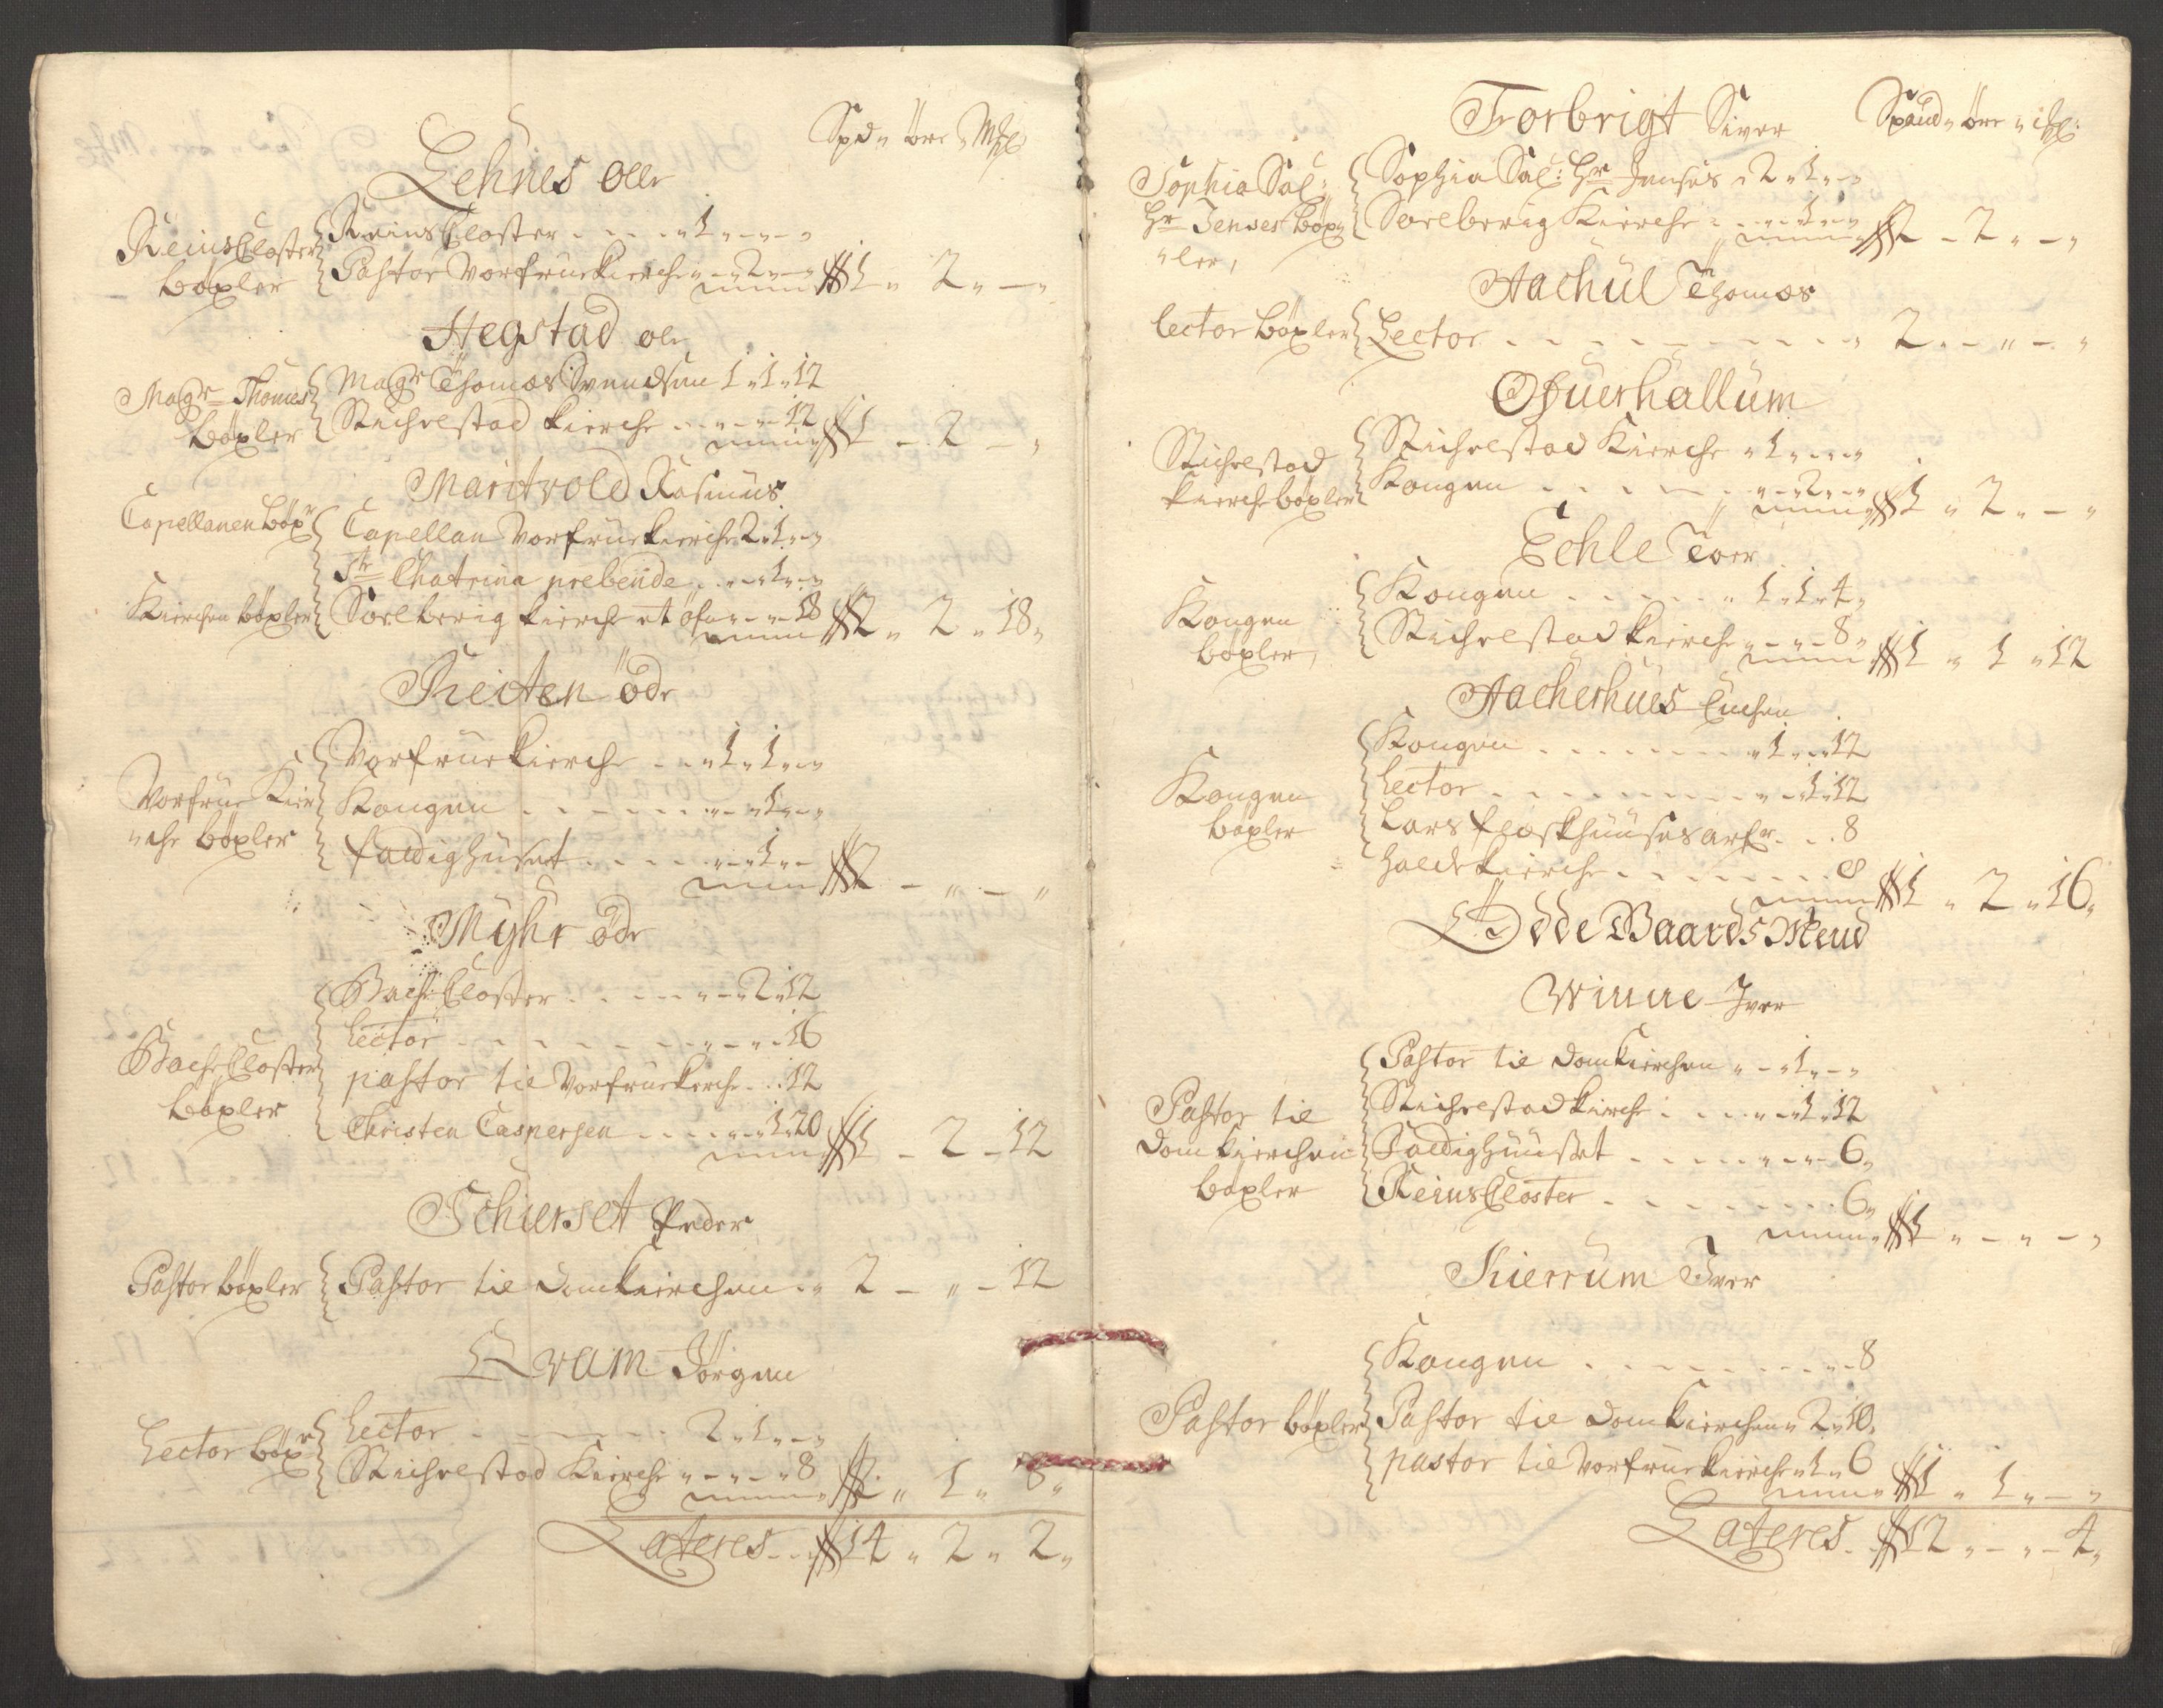 Spd„ öre „ Mkl
Lehnes Olle
Reins Closter
böxler
Reins Closter . . . . „ 1 „ – „ – „
Pastor Vorfruekierche „ – „ 2 „ – „
1 „ 2 „ – „
Hegstad ole
Magr Thomes
böxler
Magr Thomas Svendsen 1 „ 1 „ 12
Stichelstad kierche . . – „ – „ 12
1 – 2 – „
Maritvold Rasmus
Capellanen böxr
Capellan Vorfruekierche 2 „ 1 „ – „
Str Chatrina prebende . . – „ 1 „ – „
Kierchen böxler
Soelberig kierche et öfr „ – „ – „ 18
2 „ 2 „ 18 „
Reiten öde
Vorfrue Kier
„che böxler
Vorfruekierche . . – „ 1 „ 1 „ – „
Kongen . . . . . „ – „ 1 „ – „
fattighuset . . . . – „ 1 „ –
2 – „ – „
Myhr öde
Bache Closter
böxler
Bach Closter . . . . – „ – „ 2 „ 12
Lector . . . . . . „ – „ – „ 16
pastor til Vorfruekirche . . 12
Christen Caspersen . . . . „ – „ 1 „ 20
1 – 2 – 12
Schierset Peder
Pastor böxler
Pastor til Domkierchen . „ 2 – „ – 12
Qvam Jörgen
Lector böxr
Lector . . . . . . 2 „ 1 „ – „
Stichelstad Kierche „ – „ – „ 8
2 „ 1 „ 8 „
Lateres . . 14 „ 2 „ 2 „
Torbrigt Siver
Spaud„ öre „ Mkl:
Sophia Sal:
Hr Jenses böx„
„ler,
Sophia Sal: Hr Jenses „ 2 „ 1 „ – „
Soelberig Kierche . . – „ – „ 1 „ – „
2 – 2 „ – „
Aachul Thomas
lector böxler
Lector . . . . . . . . . . „ 2 „ – „ – „
Ofuerhallum
Stichelstad
kierche böxler
Stichelstad Kierche „ 1 „ – „ – „
Kongen . . . . . „ – „ 2 „ – „
1 „ 2 „ – „
Echle Toer
Kongen
böxler,
Kongen . . . . . „ 1 „ 1 „ 4 „
Stichelstad kierche „ – „ – „ 8 „
1 „ 1 „ 12
Aacherhues Enchen
Kongen
böxler
Kongen . . . . . . . „ 1 „ – „ 12
Lector . . . . . . . . „ – „ 1 „ 12
Lars floskhuuses arfr . . . 8
Halds kierche . . . . . . . 8
1 „ 2 „ 16 „
Ööde Baards Mend
Winne Iver
Pastor til
Domkierchen
böxler
Pastor til Domkierchen „ – „ 1 „ – „
Stichelstad kirche . . . . „ – „ 1 „ 12
Fattighuuset . . . . . „ – „ – 6 „
Reins Closter . . . . . . . . . 6 „
1 „ – „ – „
Kierrum Iver
Pastor böxler
Kongen . . . . . . . . – „ – 8
Pastor til Domkierchen „ 2 „ 10 „
pastor til Vorfruekierche „ 1 „ 6
1 „ 1 „ – „
Lateres . 12 „ – „ – 4 „